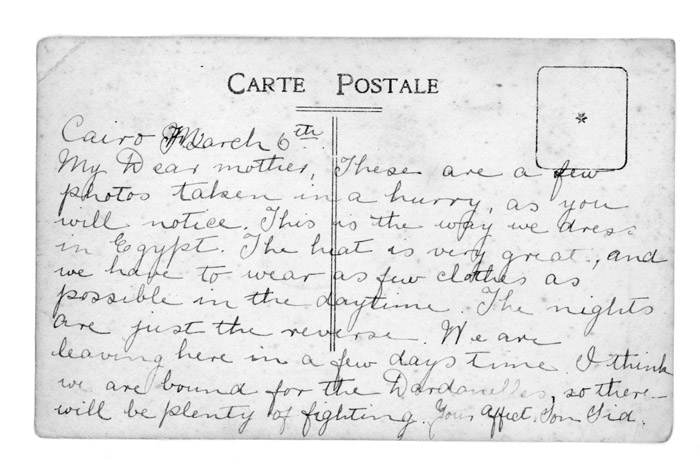 CARTE POSTALE
Cairo March 6th
My Dear mother, These are a few
photos taken in a hurry, as you
will notice. This is the way we dress
in Egypt. The heat is very great, and
we have to wear as few clothes as
possible in the daytime. The nights
are just the reverse. We are
leaving here in a few days time. I think
we are bound for the Dardanelles, so there
will be plenty of fighting. Your Affect. Son Sid.